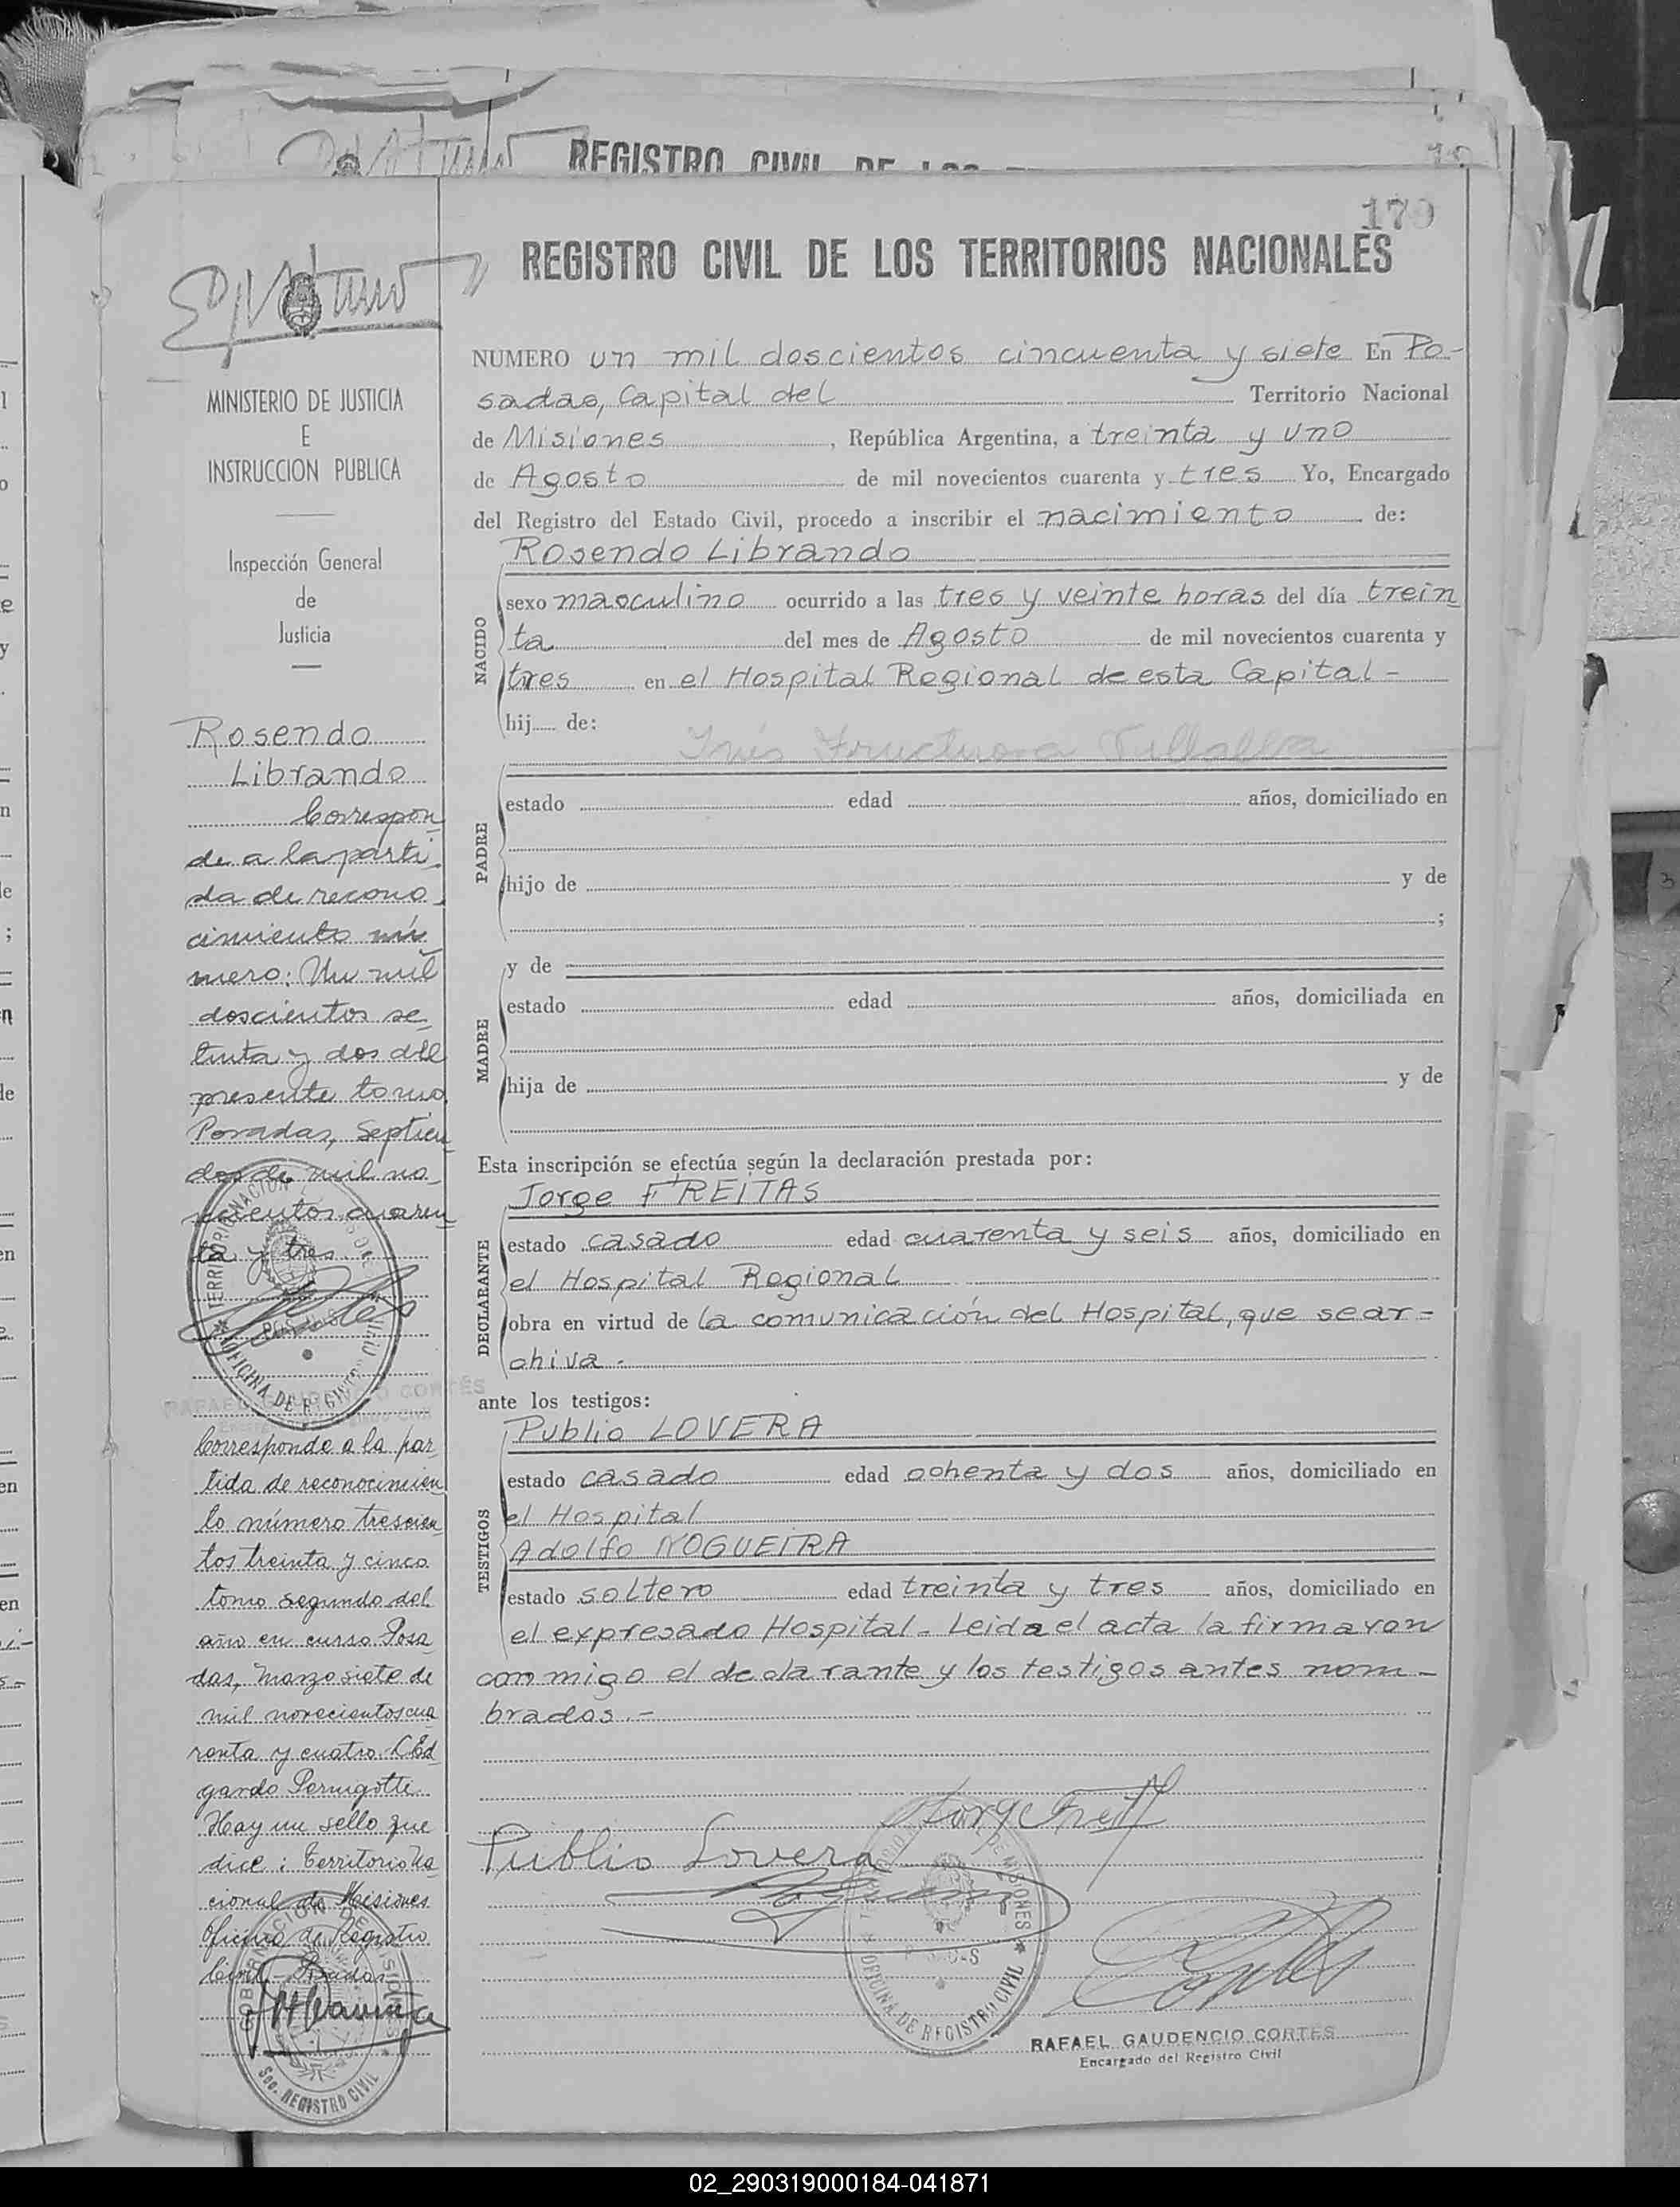 REGISTRO CIVIL DE LOS
179
REGISTRO CIVIL DE LOS TERRITORIOS NACIONALES
MINISTERIO DE JUSTICIA
E
INSTRUCCION PUBLICA
Inspección General
de
Justicia
Rosendo
Librando
Correspon
de a la parti
da de recono
cimiento nú
mero: Un mil
doscientos se
tenta y dos del
presente tomo
Posadas, Septiem
dos de mil no
vecientos cuaren
ta y tres
RAFAEL GAUDENCIO CORTÉS
Corresponde a la par
tida de reconocimien
to número trescien
tos treinta y cinco
tomo segundo del
año en curso Posa
das, Marzo siete de
mil novecientos cua
renta y cuatro. Ed
gardo Pernigotti
Hay un sello que
dice: Territorio Na
cional de Misiones
Oficina de Registro
Civil - Posadas
Sec. REGISTRO CIVIL
NUMERO un mil doscientos cincuenta y siete En Po-
sadas, Capital del Territorio Nacional
de Misiones, República Argentina, a treinta y uno
de Agosto de mil novecientos cuarenta y tres Yo, Encargado
del Registro del Estado Civil, procedo a inscribir el nacimiento de:
Rosendo Librando
NACIDO
sexo masculino ocurrido a las tres y veinte horas del día trein
ta del mes de Agosto de mil novecientos cuarenta y
tres en el Hospital Regional de esta Capital-
hij de:
Inés Fructuosa Villalba
PADRE
estado edad años, domiciliado en
hijo de y de
;
y de
MADRE
estado edad años, domiciliada en
hija de y de
Esta inscripción se efectúa según la declaración prestada por:
Jorge FREITAS
DECLARANTE
estado casado edad cuarenta y seis años, domiciliado en
el Hospital Regional
obra en virtud de la comunicación del Hospital, que se ar=
chiva.
ante los testigos:
Publio LOVERA
TESTIGOS
estado casado edad ochenta y dos años, domiciliado en
el Hospital
Adolfo NOGUEIRA
estado soltero edad treinta y tres años, domiciliado en
el expresado Hospital. Leida el acta la firmaron
conmigo el declarante y los testigos antes nom-
brados.-
Jorge Freitas
Publio Lovera
OFICINA DE REGISTRO CIVIL
RAFAEL GAUDENCIO CORTES
Encargado del Registro Civil
02_290319000184-041871